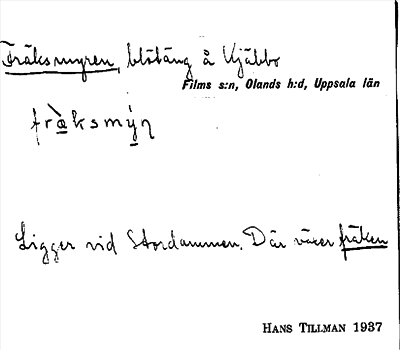 Fräksmyren, blötäng å Vjäbbo
Films s:n, Olands h:d, Uppsala län
fràksmýṇ
Ligger vid Stordammen. Där växer fräken
HANS TILLMAN 1937